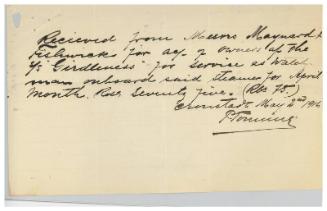 Recieved from Messrs Maynard &
Fishwick for a/c of owners of the
S/S "Girdleness" for service as watch
man onboard said steamer for April
month. Rbs Seventy five. (Rbs 75.)
Cronstadt May 2nd 1916